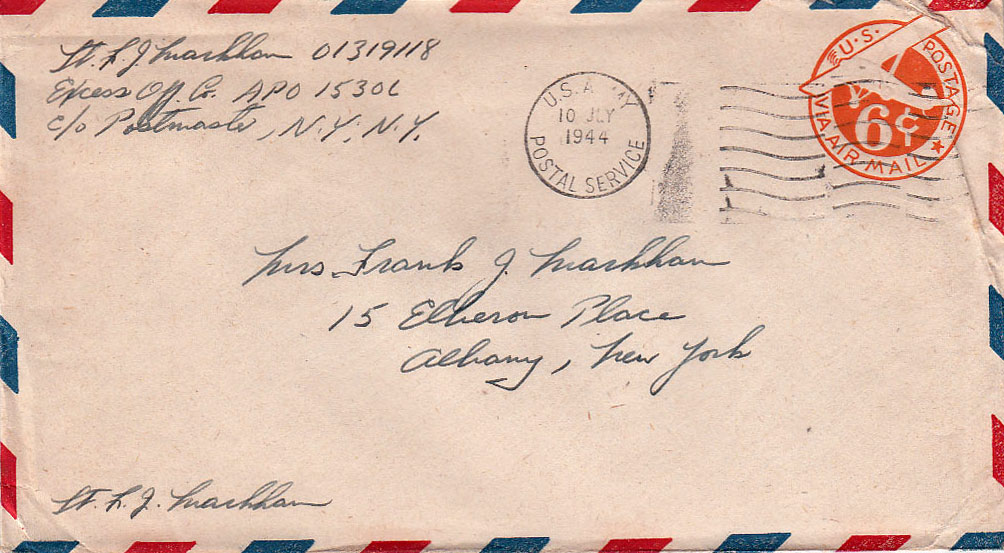 Lt. F. J. Markham 01319118
Excess Off. Co. APO 15306
c/o Postmaster, N.Y. N.Y.
U.S. A MY
10 JLY
1944
POSTAL SERVICE
U.S. POSTAGE
6¢
VIA AIR MAIL
Mrs Frank J. Markham
15 Elberon Place
Albany, New York
Lt. F. J. Markham